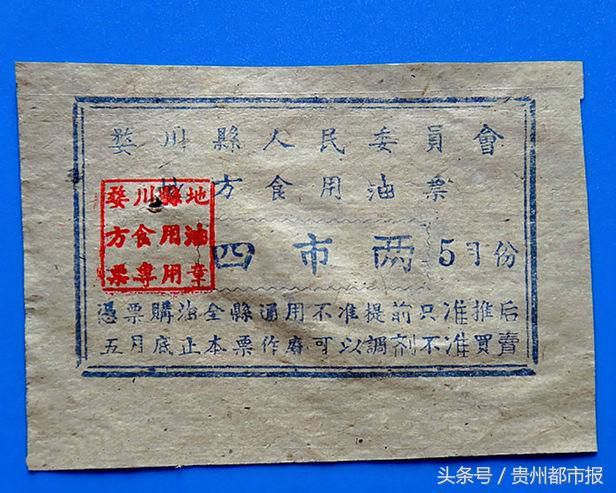 婺川縣人民委員會
地方食用油票
四市两 5月份
憑票購油全縣通用不准提前只准推后
五月底止本票作廢可以調剂不准買賣
婺川縣地
方食用油
票專用章
头条号／贵州都市报